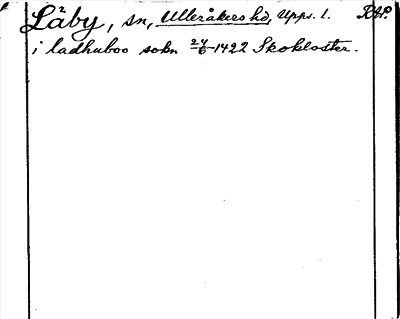 Låby, sn, Ulleråkers hd, Upps. l. RAP.
i ladhuboo sokn 24/6 1422 Skokloster.